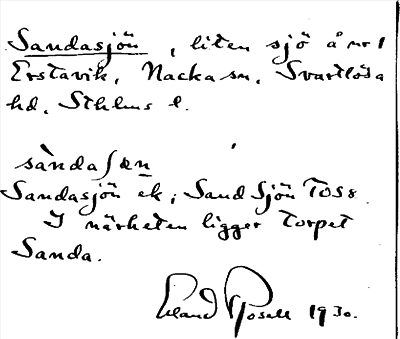 Sandasjön, liten sjö å nr 1
Erstavik, Nacka sn, Svartlösa
hd, Sthlms l.
sàndaʃæn
Sandasjön ek; Sand Sjön TOS8.
I närheten ligger torpet
Sanda.
Erland Rosell 1930.